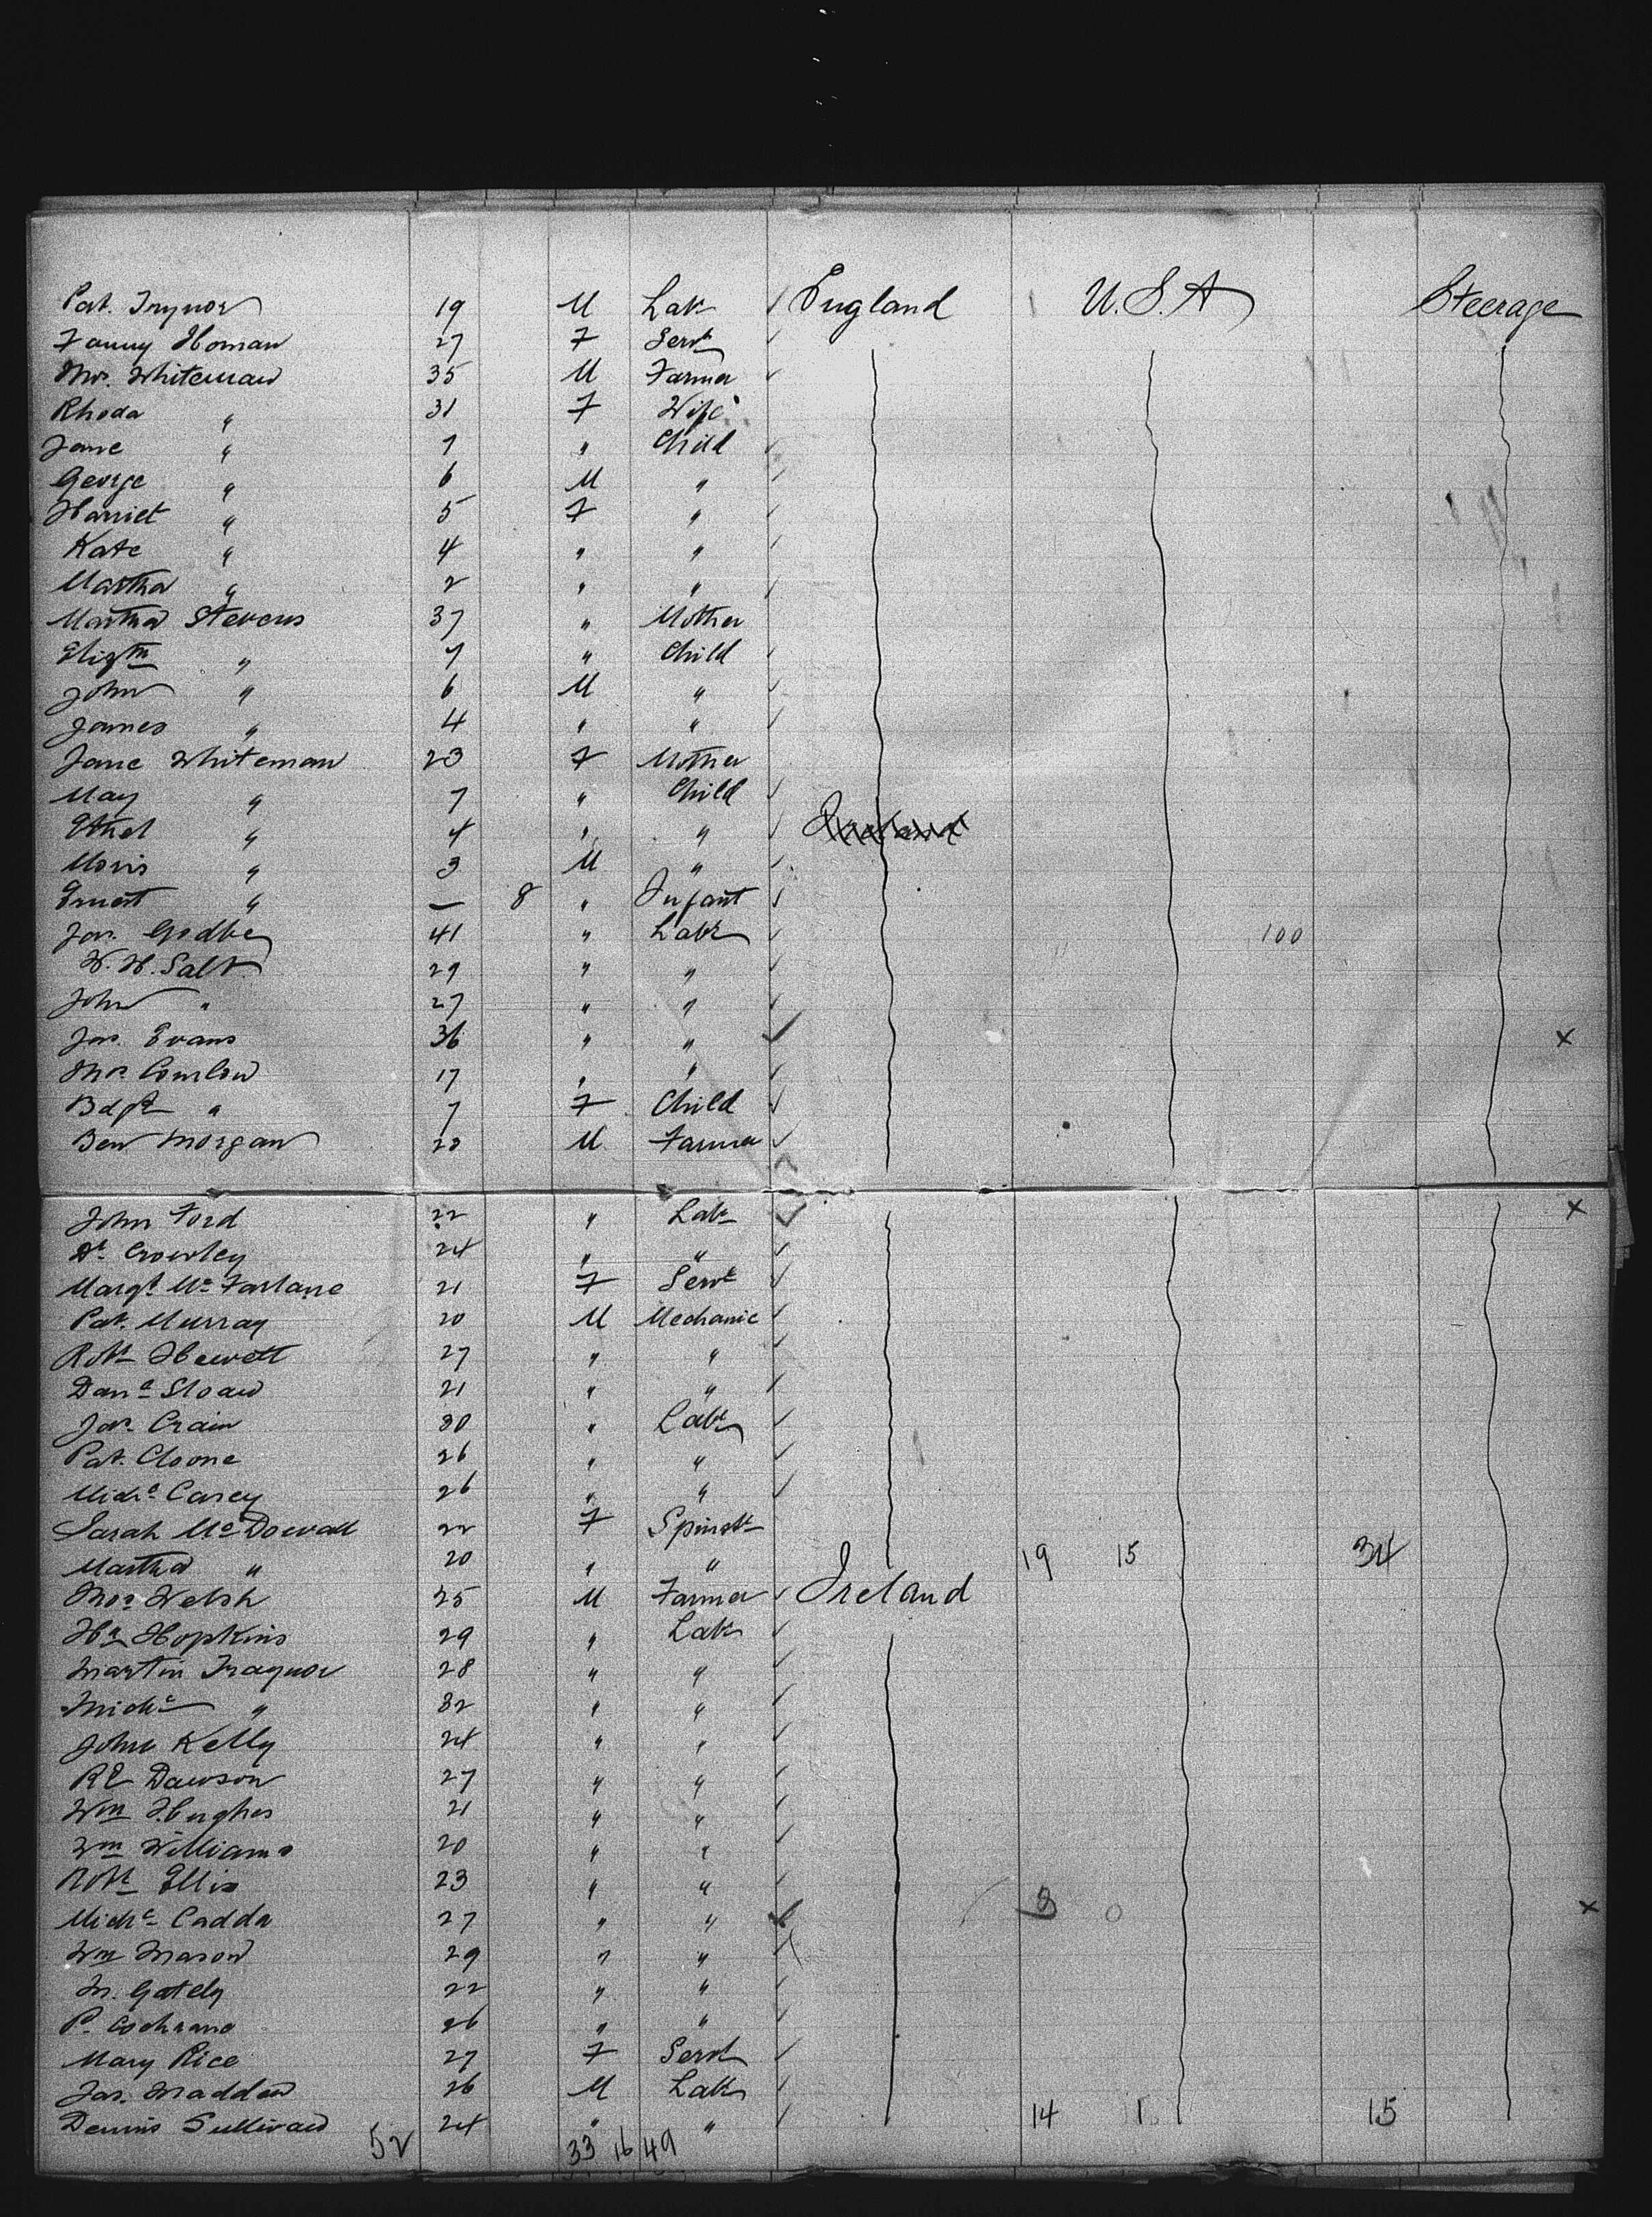 Pat. Trynor 19 M Labr ✓ England U.S.A Steerage
Fanny Homan 27 F Servt ✓
Thos. Whiteman 35 M Farmer ✓
Rhoda " 31 F Wife
Jane " 7 " Child ✓
George " 6 M " ✓
Harriet " 5 F " ✓
Kate " 4 " " ✓
Martha " 2 " " ✓
Martha Stevens 37 " Mother
Elizth " 7 " Child ✓
John " 6 M " ✓
James " 4 " " ✓
Jane Whiteman 23 F Mother
May " 7 " Child ✓
Ethel " 4 " " ✓
Moris " 3 M " ✓
Ernest " — 8 " Infant ✓
Jas. Godbey 41 " Labr ✓ 100
W. H. Salt 29 " " ✓
John " 27 " " ✓
Jas. Evans 36 " " ✓ x
Thos. 17 " " ✓
Bdgt " 7 F Child ✓
Ben Morgan 20 M Farmer ✓
John Ford 22 " Labr ✓ x
Dl Crowley 24 " " ✓
Margt Mc Farlane 21 F Servt ✓
Pat. Murray 20 M Mechanic ✓
Robt Hewett 27 " " ✓
Danl Sloan 21 " " ✓
Jas. Crain 30 " Labr ✓
Pat. Cloone 26 " " ✓
Michl Carey 26 " " ✓
Sarah McDowall 22 F Spinstr
Martha " 20 " " 19 15 34
Thos Welsh 25 M Farmer ✓ Ireland
Hy Hopkins 29 " Labr ✓
Martin Traynor 28 " " ✓
Michl " 32 " " ✓
John Kelly 24 " " ✓
RE Dawson 27 " " ✓
Wm Hughes 21 " " ✓
Wm Williams 20 " " ✓
Robt Ellis 23 " " ✓
Michl Cadda 27 " " ✓ 3 0 x
Wm Mason 29 " " ✓
M. Gately 22 " " ✓
P. Cochrane 26 " " ✓
Mary Rice 27 F Servt ✓
Jas. Madden 26 M Labr ✓
Dennis Sullivan 24 " " ✓ 14 1 15
52 33 16 49